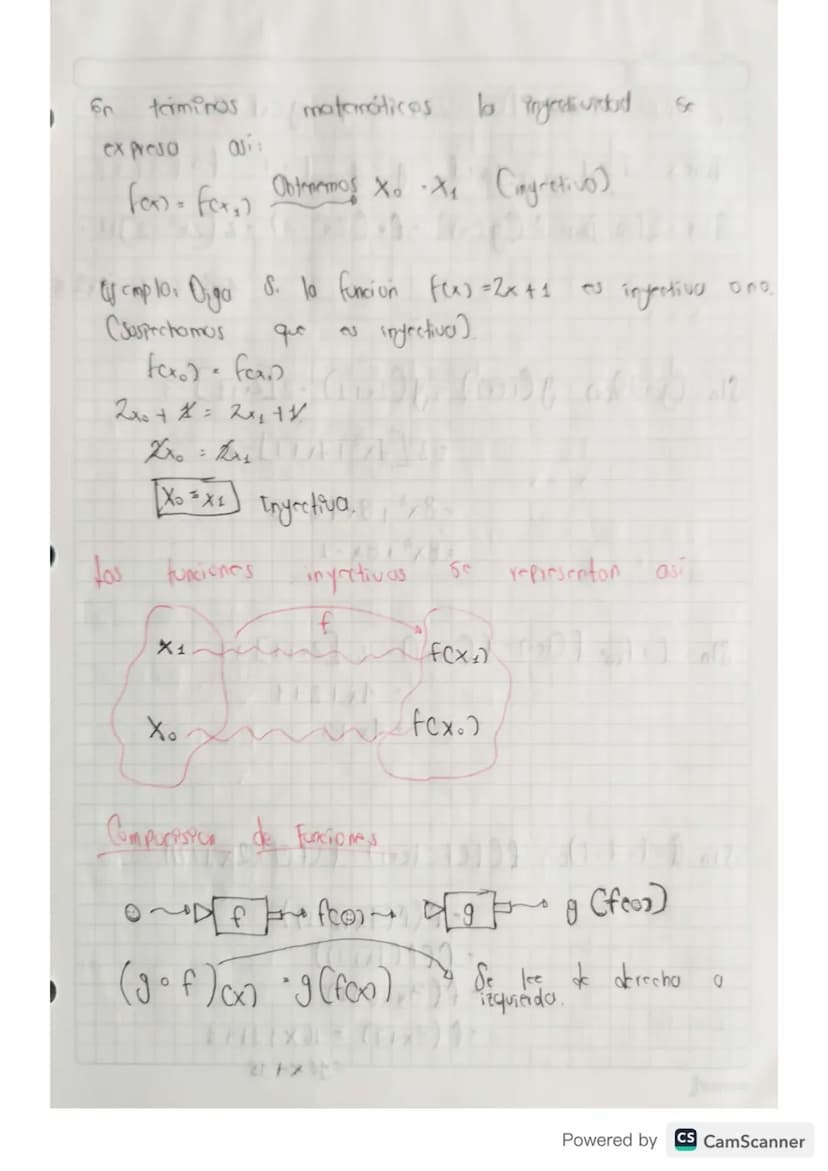 En términos matemáticos la inyectividad se
expresa así:
f(x) = f(x₁) Obtenemos x₀ = x₁ (inyectivo)
Ejemplo: Diga si la función f(x) = 2x + 1 es inyectiva o no.
(Sospechamos que es inyectiva)
f(x₀) = f(x₁)
2x₀ + 1 = 2x₁ + 1
2x₀ = 2x₁
x₀ = x₁ Inyectiva.
Las funciones inyectivas se representan así
f
x₁ f(x₁)
x₀ f(x₀)
de Funciones
f g g(f(
(g∘f)(x) = g(f(x)) Se lee de derecha a
izquierda.
Powered by CS CamScanner